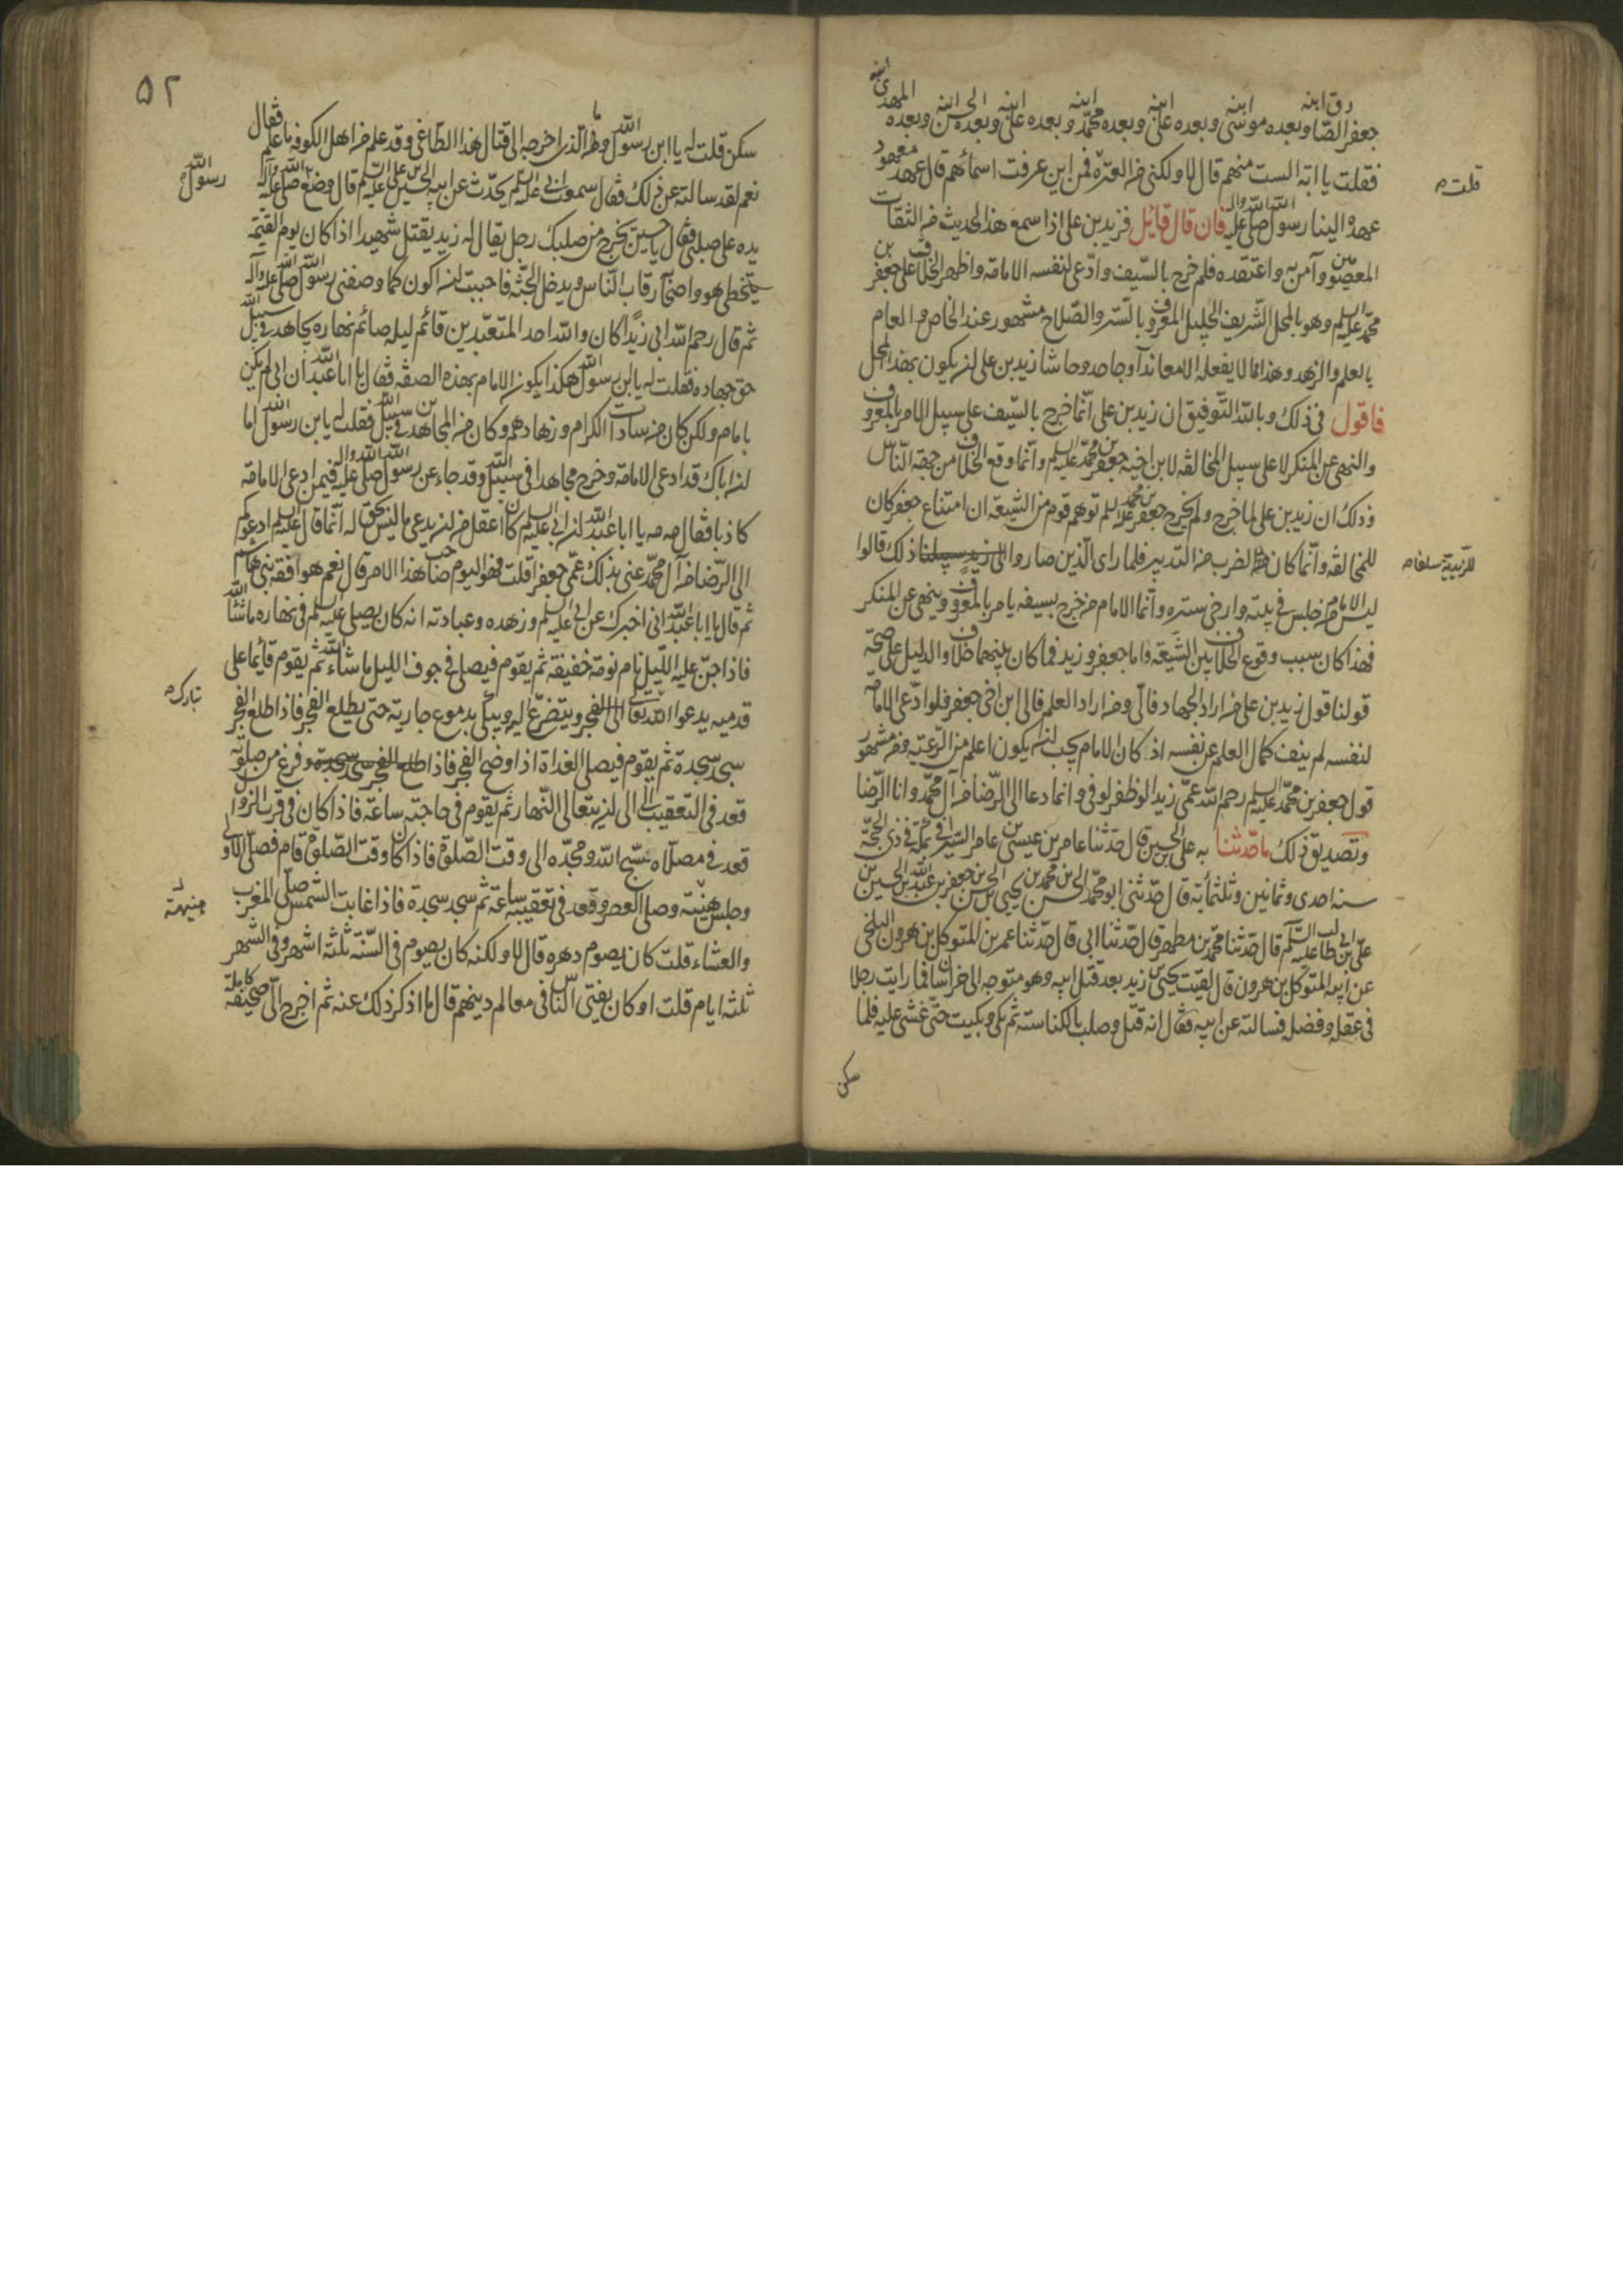 جعفر الصادق ابنه وبعده موسى ابنه وبعده على ابنه وبعده محمّد ابنه وبعده على ابنه وبعده الحسن ابنه وبعده المهدى ابنه
فقلت يا ابة الست منهم قال لا ولكنى من العترة فمن اين عرفت اسمائهم قال عهد معهود
قلت
عهده الينا رسول الله صلى الله عليه واله فان قال قائل فزيد بن على اذا سمع هذا الحديث من الثقات
المعصومين وآمن به واعتقده فلم خرج بالسّيف وادّعى لنفسه الامامة واظهر الخلاف على جعفر بن
محمّد عليه السلم وهو بالمحل الشّريف الجليل المعروف بالستر والصّلاح مشهور عند الخاص والعام
بالعلم والزهد وهذا ما لا يفعله الا معاند او جاحد وحاشا زيد بن على ان يكون بهذا المحل
فاقول فى ذلك وبالله التّوفيق ان زيد بن على انّما خرج بالسّيف على سبيل الامر بالمعروف
والنهى عن المنكر لا على سبيل المخالفة لابن اخيه جعفر بن محمّد عليه السلم وانّما وقع الخلاف من جهة النّاس
وذلك ان زيد بن على لما خرج ولم يخرج جعفر بن محمد عليه السلم توهم قوم من الشّيعة ان امتناع جعفر كان
للمخالفة وانّما كان لضرب من التدبير فلما راى الّذين صاروا الى زيد سبيلنا ذلك قالوا
للزّيدية سلفا
ليس الامام من جلس فى بيته وارخى ستره وانّما الامام من خرج بسيفه يامر بالمعروف وينهى عن المنكر
فهذا كان سبب وقوع الخلاف بين الشّيعة واما جعفر وزيد فما كان بينهما خلاف والدليل على صحّة
قولنا قول زيد بن على من اراد الجهاد فالىّ ومن اراد العلم فالى ابن اخى جعفر فلو ادّعى الامامة
لنفسه لم ينف كمال العلم عن نفسه اذ كان الامام يجب ان يكون اعلم من الرّعيّة ومن مشهور
قول جعفر بن محمّد عليه السلم رحم الله عمّى زيدا لو ظفر لوفى وانما دعا الى الرّضا من آل محمّد وانا الرّضا
وتصديق ذلك ما حدّثنا به على بن الحسين قال حدّثنا عامر بن عيسى بن عامر السّيرافى بمكّة فى ذى الحجّة
سنه احدى وثمانين وثلثمأية قال حدّثنى ابو محمّد الحسن بن محمد بن يحيى بن الحسن بن جعفر بن عبد الله بن الحسين بن
علىّ بن ابى طالب عليه السّلم قال حدّثنا محمّد بن مطهر قال حدّثنا ابى قال حدّثنا عمر بن المتوكل بن هرون البلخى
عن ابيه المتوكل بن هرون قال لقيت يحيى بن زيد بعد قتل ابيه وهو متوجه الى خراسان فما رايت رجلا
فى عقله وفضله فسالته عن ابيه فقال انه قتل وصلب بالكناسة ثم بكى وبكيت حتّى غشى عليه فلما
سكن
۵۲
سكن قلت له يا ابن رسول الله وما الّذى اخرجه الى قتال هذا الطّاغى وقد علم من اهل الكوفة ما علم فقال
نعم لقد سالته عن ذلك فقال سمعت ابى عليه السلم يحدّث عن ابيه الحسين بن على عليه السلم قال وضع رسول الله صلى الله عليه وآله
يده على صلبى فقال يا حسين يخرج من صلبك رجل يقال له زيد يقتل شهيدا اذا كان يوم القيمة
يتخطى هو واصحابه رقاب النّاس ويدخل الجنّة فاحببت ان اكون كما وصفنى رسول الله صلى الله عليه وآله
ثم قال رحم الله ابى زيدًا كان والله احد المتعبّدين قائم ليله صائم نهاره يجاهد فى سبيل الله
حق جهاده فقلت له يا ابن رسول الله هكذا يكون الامام بهذه الصفة فقال يا ابا عبد الله ان ابى لم يكن
بامام ولكن كان من سادات الكرام وزهادهم وكان من المجاهدين فى سبيل الله فقلت له يا بن رسول الله اما
ان اباك قد ادعى الامامة وخرج مجاهدا فى سبيل الله وقد جاء عن رسول الله صلى الله عليه واله فيمن ادعى الامامة
كاذبا فقال مه مه يا ابا عبد الله ان ابى عليه السلم كان اعقل من ان يدعى ما ليس بحق له انّما قال عليه السلم ادعوكم
الى الرّضا من آل محمّد عنى بذلك عمّى جعفرا قلت فهو اليوم صاحب هذا الامر قال نعم هو افقه بنى هاشم
ثم قال يا ابا عبد الله انى اخبرك عن ابى عليه السلم وزهده وعبادته انه كان يصلى عليه السلم فى نهاره ما شاء الله
فاذا جنّ عليه اللّيل نام نومة خفيفة ثم يقوم فيصلى فى جوف الليل ما شاء الله ثم يقوم قائما على
قدميه يدعوا الله تعالى الى الفجر ويتضرّع اليه ويبكى بدموع جارية حتى يطلع الفجر فاذا طلع الفجر
تبارك
سجد سجدة ثم يقوم فيصلى الغداة اذا اوضح الفجر فاذا طلع الفجر سجد سجدة وفرغ من صلوته
قعد فى التعقيب الى ان يتعالى النّهار ثم يقوم فى حاجته ساعة فاذا كان فى قرب الزوال
قعد فى مصلاه سبّح الله ومجّده الى وقت الصّلوة فاذا كان وقت الصّلوة قام فصلى الاولى
وجلس هنيئة وصلى العصر وقعد فى تعقيبه ساعة ثم سجد سجدة فاذا غابت الشمس صلّى المغرب
هنيهة
والعشاء قلت كان يصوم دهره قال لا ولكنه كان يصوم فى السّنة ثلثة اشهر وفى الشّهر
ثلثه ايام قلت او كان يفتى النّاس فى معالم دينهم قال ما اذكر ذلك عنه ثم اخرج الىّ صحيفة كاملة